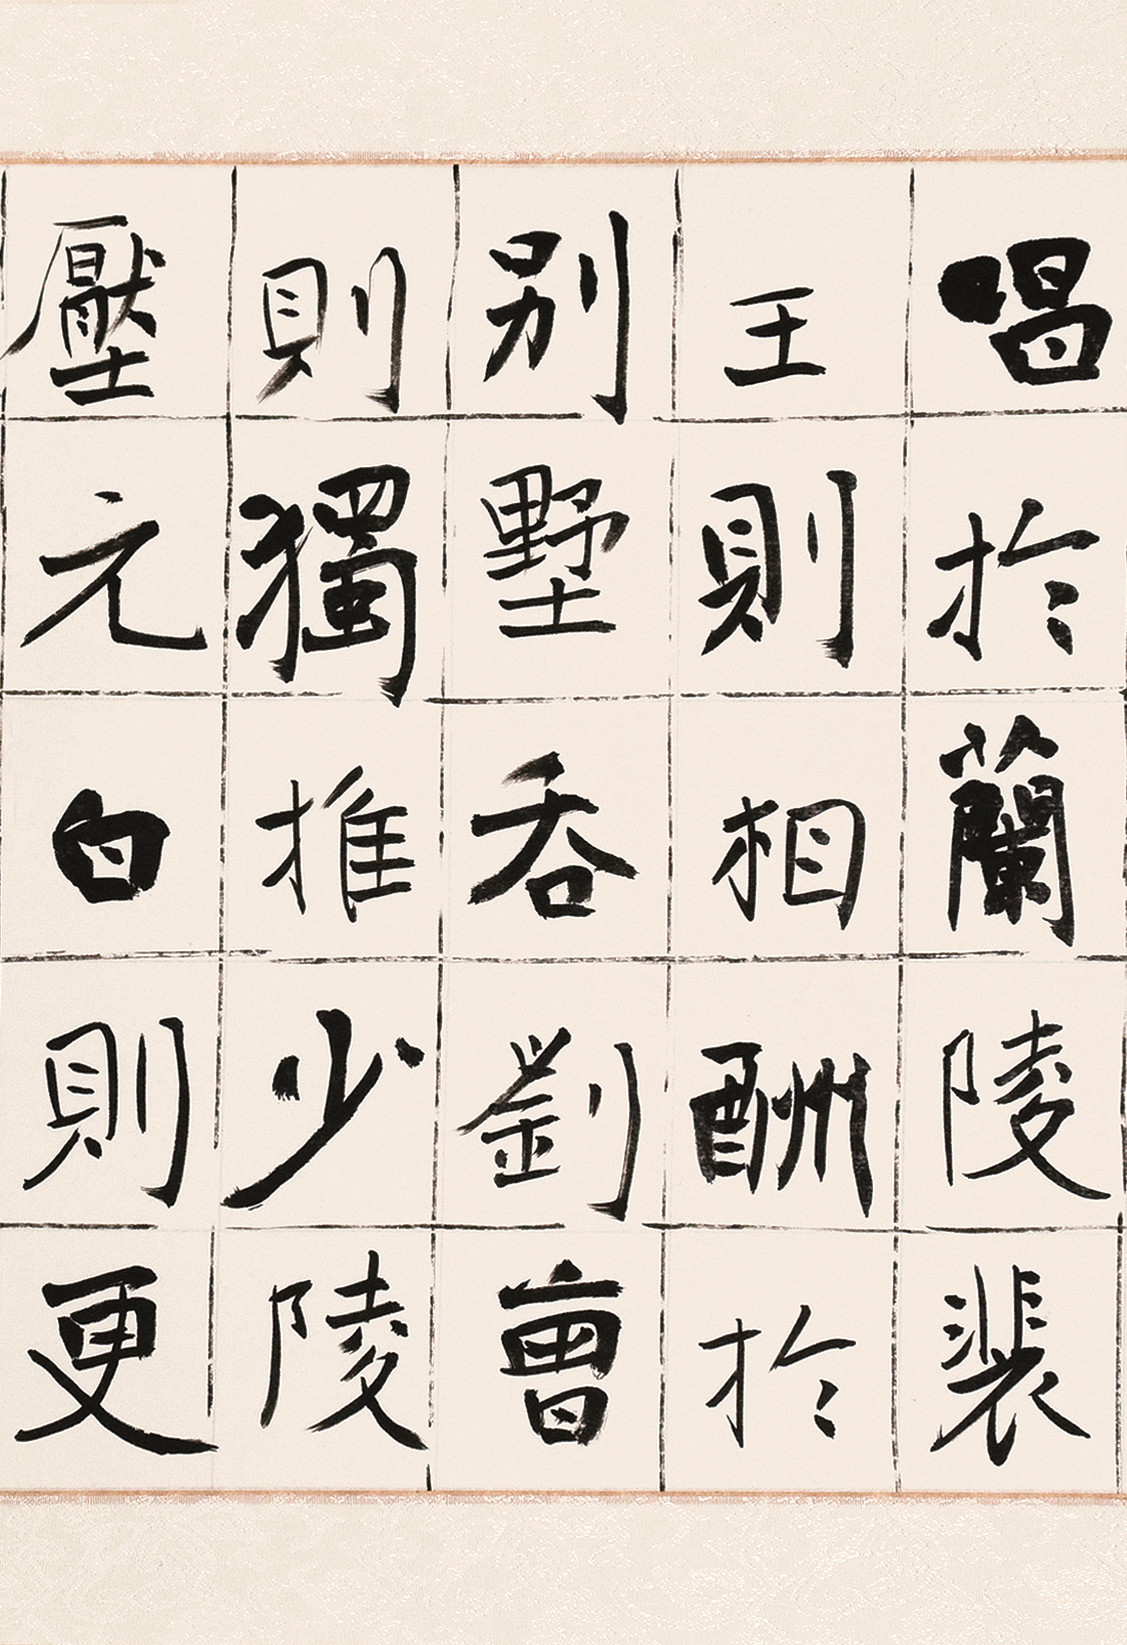 唱於蘭陵裴
王則相酬於
別墅吞劉曹
則獨推少陵
壓元白則更